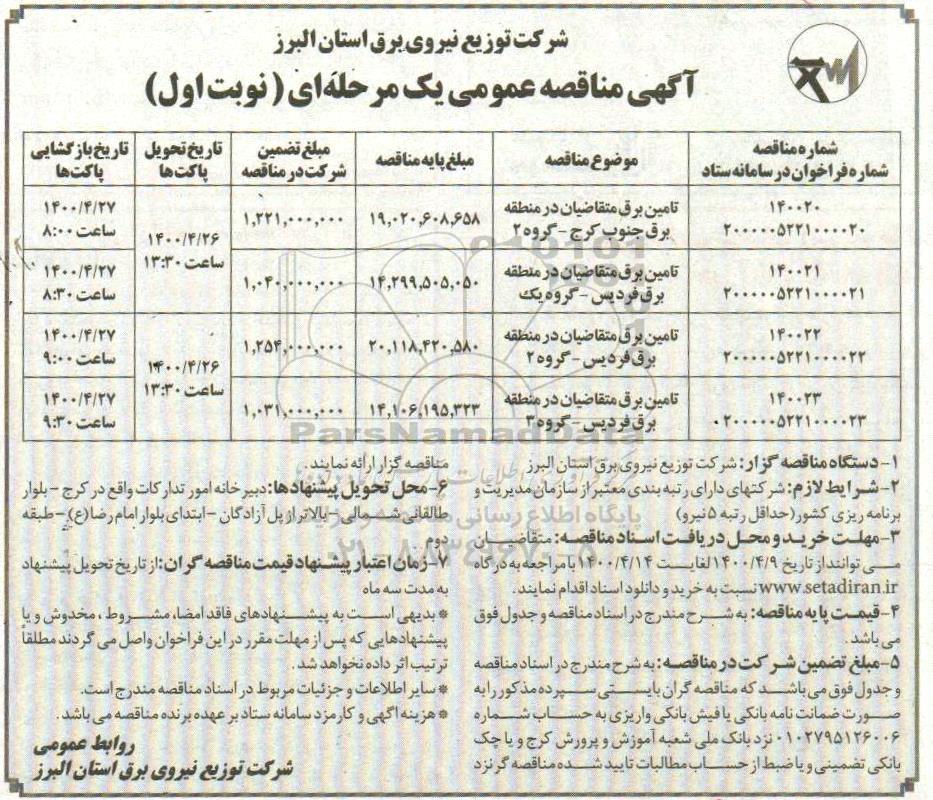 شرکت توزیع نیروی برق استان البرز
آگهی مناقصه عمومی یک مرحله‌ای (نوبت اول)
شماره مناقصه
شماره فراخوان در سامانه ستاد
موضوع مناقصه
مبلغ پایه مناقصه
مبلغ تضمین
شرکت در مناقصه
تاریخ تحویل
پاکت‌ها
تاریخ بازگشایی
پاکت‌ها
۱۴۰۰۲۰
۲۰۰۰۰۰۵۲۲۱۰۰۰۰۲۰
تامین برق متقاضیان در منطقه
برق جنوب کرج - گروه ۲
۱۹,۰۲۰,۶۰۸,۶۵۸
۱,۲۲۱,۰۰۰,۰۰۰
۱۴۰۰/۴/۲۶
ساعت ۱۳:۳۰
۱۴۰۰/۴/۲۷
ساعت ۸:۰۰
۱۴۰۰۲۱
۲۰۰۰۰۰۵۲۲۱۰۰۰۰۲۱
تامین برق متقاضیان در منطقه
برق فردیس - گروه یک
۱۴,۲۹۹,۵۰۵,۰۵۰
۱,۰۴۰,۰۰۰,۰۰۰
۱۴۰۰/۴/۲۷
ساعت ۸:۳۰
۱۴۰۰۲۲
۲۰۰۰۰۰۵۲۲۱۰۰۰۰۲۲
تامین برق متقاضیان در منطقه
برق فردیس - گروه ۲
۲۰,۱۱۸,۴۲۰,۵۸۰
۱,۲۵۴,۰۰۰,۰۰۰
۱۴۰۰/۴/۲۶
ساعت ۱۳:۳۰
۱۴۰۰/۴/۲۷
ساعت ۹:۰۰
۱۴۰۰۲۳
۲۰۰۰۰۰۵۲۲۱۰۰۰۰۲۳
تامین برق متقاضیان در منطقه
برق فردیس - گروه ۳
۱۴,۱۰۶,۱۹۵,۳۲۳
۱,۰۳۱,۰۰۰,۰۰۰
۱۴۰۰/۴/۲۷
ساعت ۹:۳۰
ParsNamadData
۱- دستگاه مناقصه گزار: شرکت توزیع نیروی برق استان البرز
۲- شرایط لازم: شرکتهای دارای رتبه بندی معتبر از سازمان مدیریت و
برنامه ریزی کشور (حداقل رتبه ۵ نیرو)
۳- مهلت خرید و محل دریافت اسناد مناقصه: متقاضیان
می توانند از تاریخ ۱۴۰۰/۴/۹ لغایت ۱۴۰۰/۴/۱۴ با مراجعه به درگاه
www.setadiran.ir نسبت به خرید و دانلود اسناد اقدام نمایند.
۴- قیمت پایه مناقصه: به شرح مندرج در اسناد مناقصه و جدول فوق
می باشد.
۵- مبلغ تضمین شرکت در مناقصه: به شرح مندرج در اسناد مناقصه
و جدول فوق می باشد که مناقصه گران بایستی سپرده مذکور را به
صورت ضمانت نامه بانکی یا فیش بانکی واریزی به حساب شماره
۰۱۰۲۷۹۵۱۲۶۰۰۶ نزد بانک ملی شعبه آموزش و پرورش کرج و یا چک
بانکی تضمینی و یا ضبط از حساب مطالبات تایید شده مناقصه گر نزد
مناقصه گزار ارائه نمایند.
۶- محل تحویل پیشنهادها: دبیرخانه امور تدارکات واقع در کرج - بلوار
طالقانی شمالی - بالاتر از پل آزادگان - ابتدای بلوار امام رضا (ع) - طبقه
دوم
۷- زمان اعتبار پیشنهاد قیمت مناقصه گران: از تاریخ تحویل پیشنهاد
به مدت سه ماه
* بدیهی است به پیشنهادهای فاقد امضا، مشروط، مخدوش و یا
پیشنهادهایی که پس از مهلت مقرر در این فراخوان واصل می گردند مطلقا
ترتیب اثر داده نخواهد شد.
* سایر اطلاعات و جزئیات مربوط در اسناد مناقصه مندرج است.
* هزینه آگهی و کارمزد سامانه ستاد بر عهده برنده مناقصه می باشد.
روابط عمومی
شرکت توزیع نیروی برق استان البرز